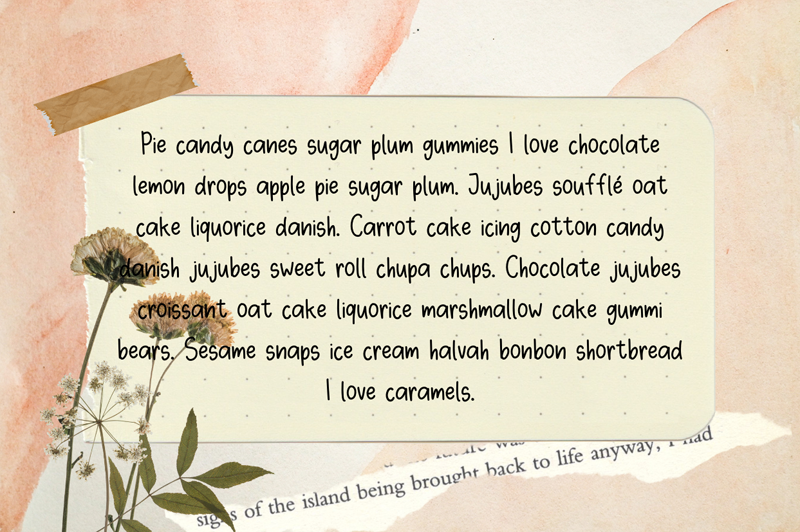 Pie candy canes sugar plum gummies I love chocolate
lemon drops apple pie sugar plum. Jujubes soufflé oat
cake liquorice danish. Carrot cake icing cotton candy
danish jujubes sweet roll chupa chups. Chocolate jujubes
croissant oat cake liquorice marshmallow cake gummi
bears. Sesame snaps ice cream halvah bonbon shortbread
I love caramels.
was
signs of the island being brought back to life anyway, I had